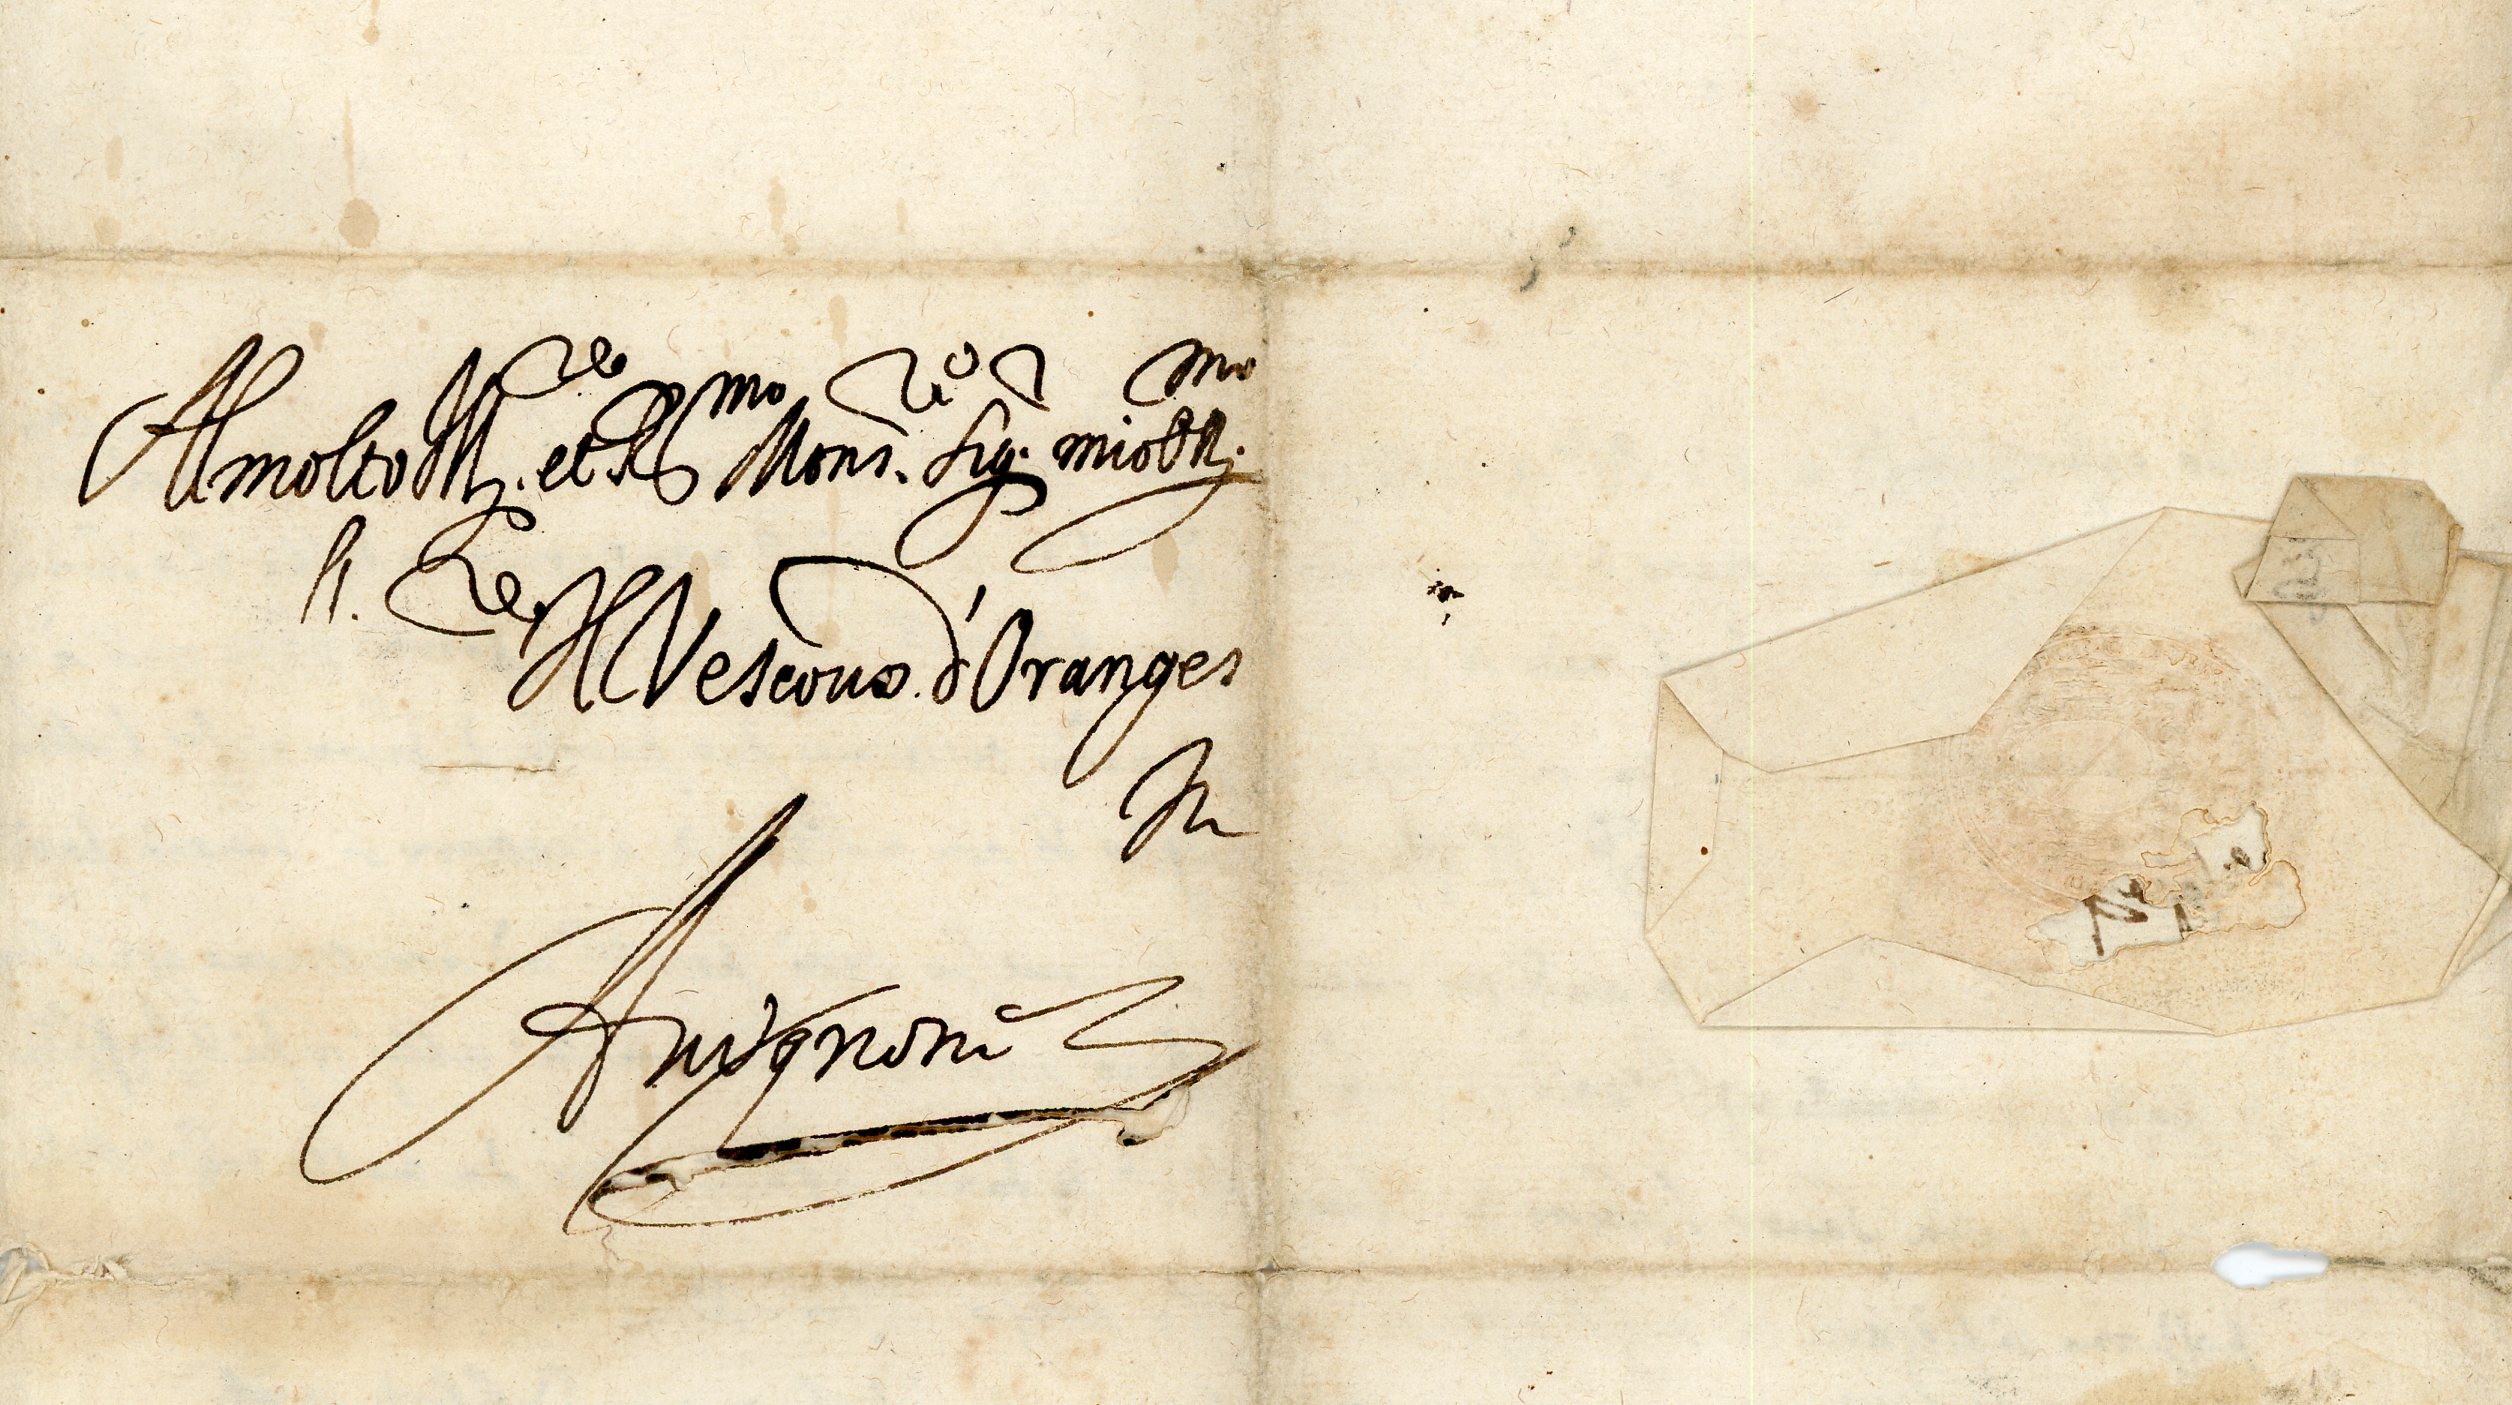 Al molto Ill.re et R.mo Mons.r Sig.r mio oss.mo
Il Vescovo d'Oranges
In
Avignone